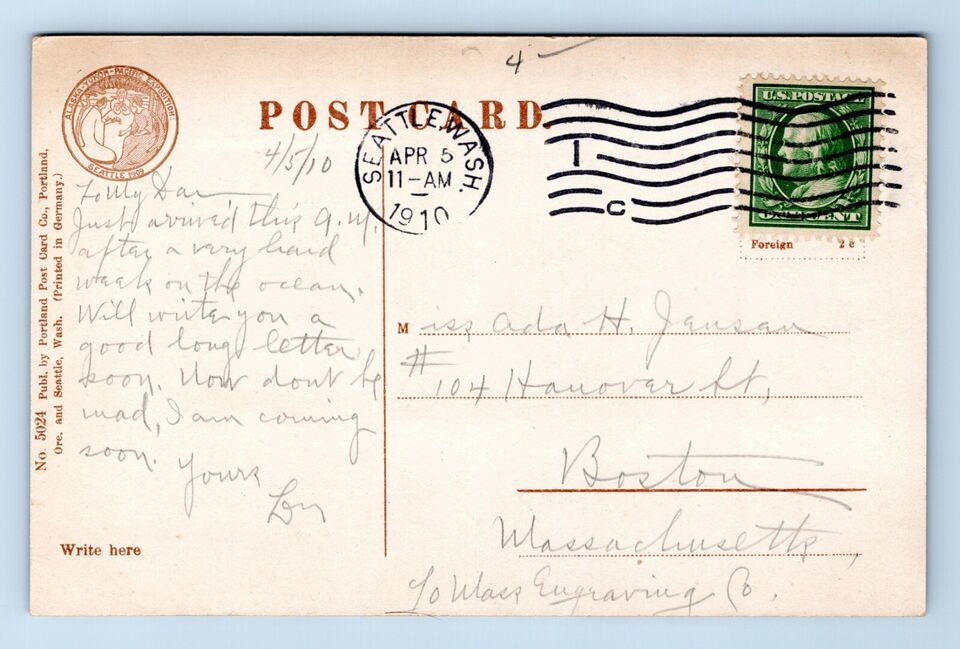 4
ALASKA-YUKON-PACIFIC EXPOSITION
SEATTLE 1909
POST CARD.
SEATTLE, WASH.
APR 5
11-AM
1910
1
C
U.S. POSTAGE
ONE CENT
Foreign 2c
4/5/10
To My Dar
Just arrived this a.m.
after a very hard
week on the ocean.
Will write you a
good long letter
soon. Now dont be
mad, I am coming
soon.
Yours
Miss Ada H. Jensen
# 104 Hanover St,
Boston
Massachusetts,
c/o Mass Engraving Co.
No. 5024 Publ. by Portland Post Card Co., Portland,
Ore. and Seattle, Wash. (Printed in Germany.)
Write here